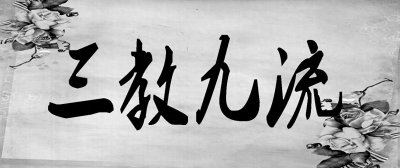 三教九流